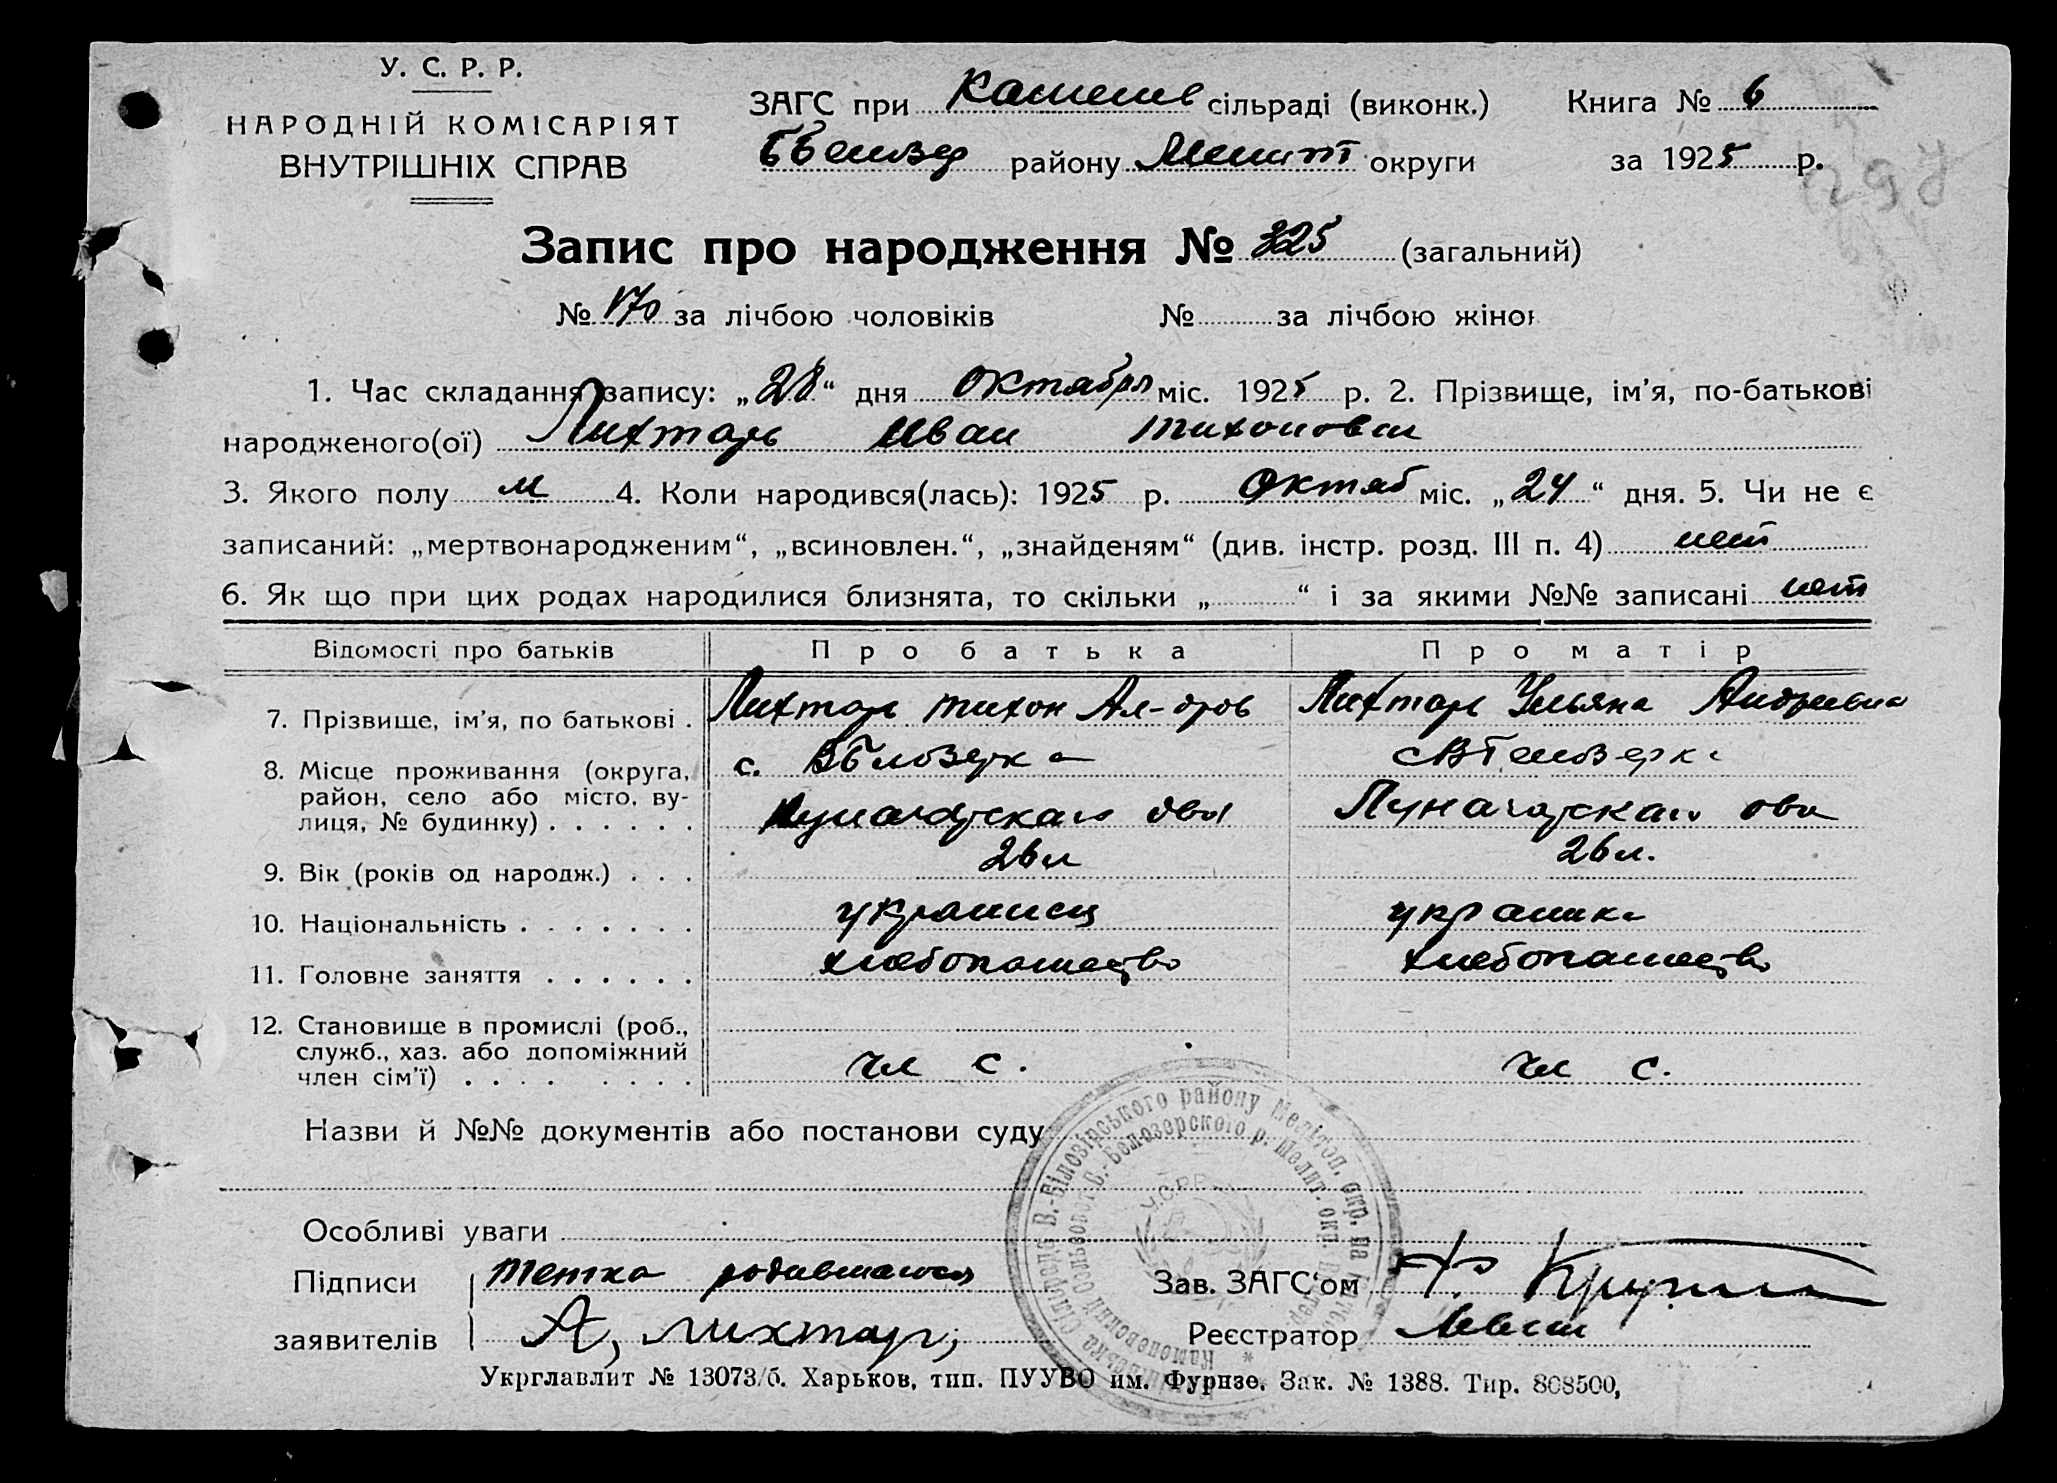 У. С. Р. Р.
НАРОДНІЙ КОМІСАРІЯТ
ВНУТРІШНІХ СПРАВ
ЗАГС при сільраді (виконк.) Книга № 6
району Мелит округи за 1925 р.
Запис про народження № 325 (загальний)
№ 170 за лічбою чоловіків № за лічбою жінок
1. Час складання запису: „28“ дня октября міс. 1925 р. 2. Прізвище, ім'я, по-батькові
народженого(ої) Лихтарь Иван Тихонович
3. Якого полу м 4. Коли народився(лась): 1925 р. октяб міс. „24“ дня. 5. Чи не є
записаний: „мертвонародженим“, „всиновлен.“, „знайденям“ (див. інстр. розд. III п. 4) нет
6. Як що при цих родах народилися близнята, то скільки „ “ і за якими №№ записані нет
Відомості про батьків Про батька Про матір
7. Прізвище, ім'я, по батькові . Лихтарь Тихон Лихтарь Ульяна Андреевна
8. Місце проживання (округа, район, село або місто, вулиця, № будинку) . . . . . . с. ВБелозерка с ВБелозерка
9. Вік (років од народж.) . . . 26 л 26 л.
10. Національність . . . . . . . украинец украинка
11. Головне заняття . . . . . . хлебопашество хлебопашество
12. Становище в промислі (роб., служб., хаз. або допоміжний член сім'ї) . . . . . . . . чл с. чл с.
Назви й №№ документів або постанови суду
Особливі уваги
Підписи тетка родившагося Зав. ЗАГС'ом
заявителів А, лихтарь, Реєстратор
Укрглавлит № 13073/б. Харьков, тип. ПУУВО им. Фрунзе. Зак. № 1388. Тир. 808500,